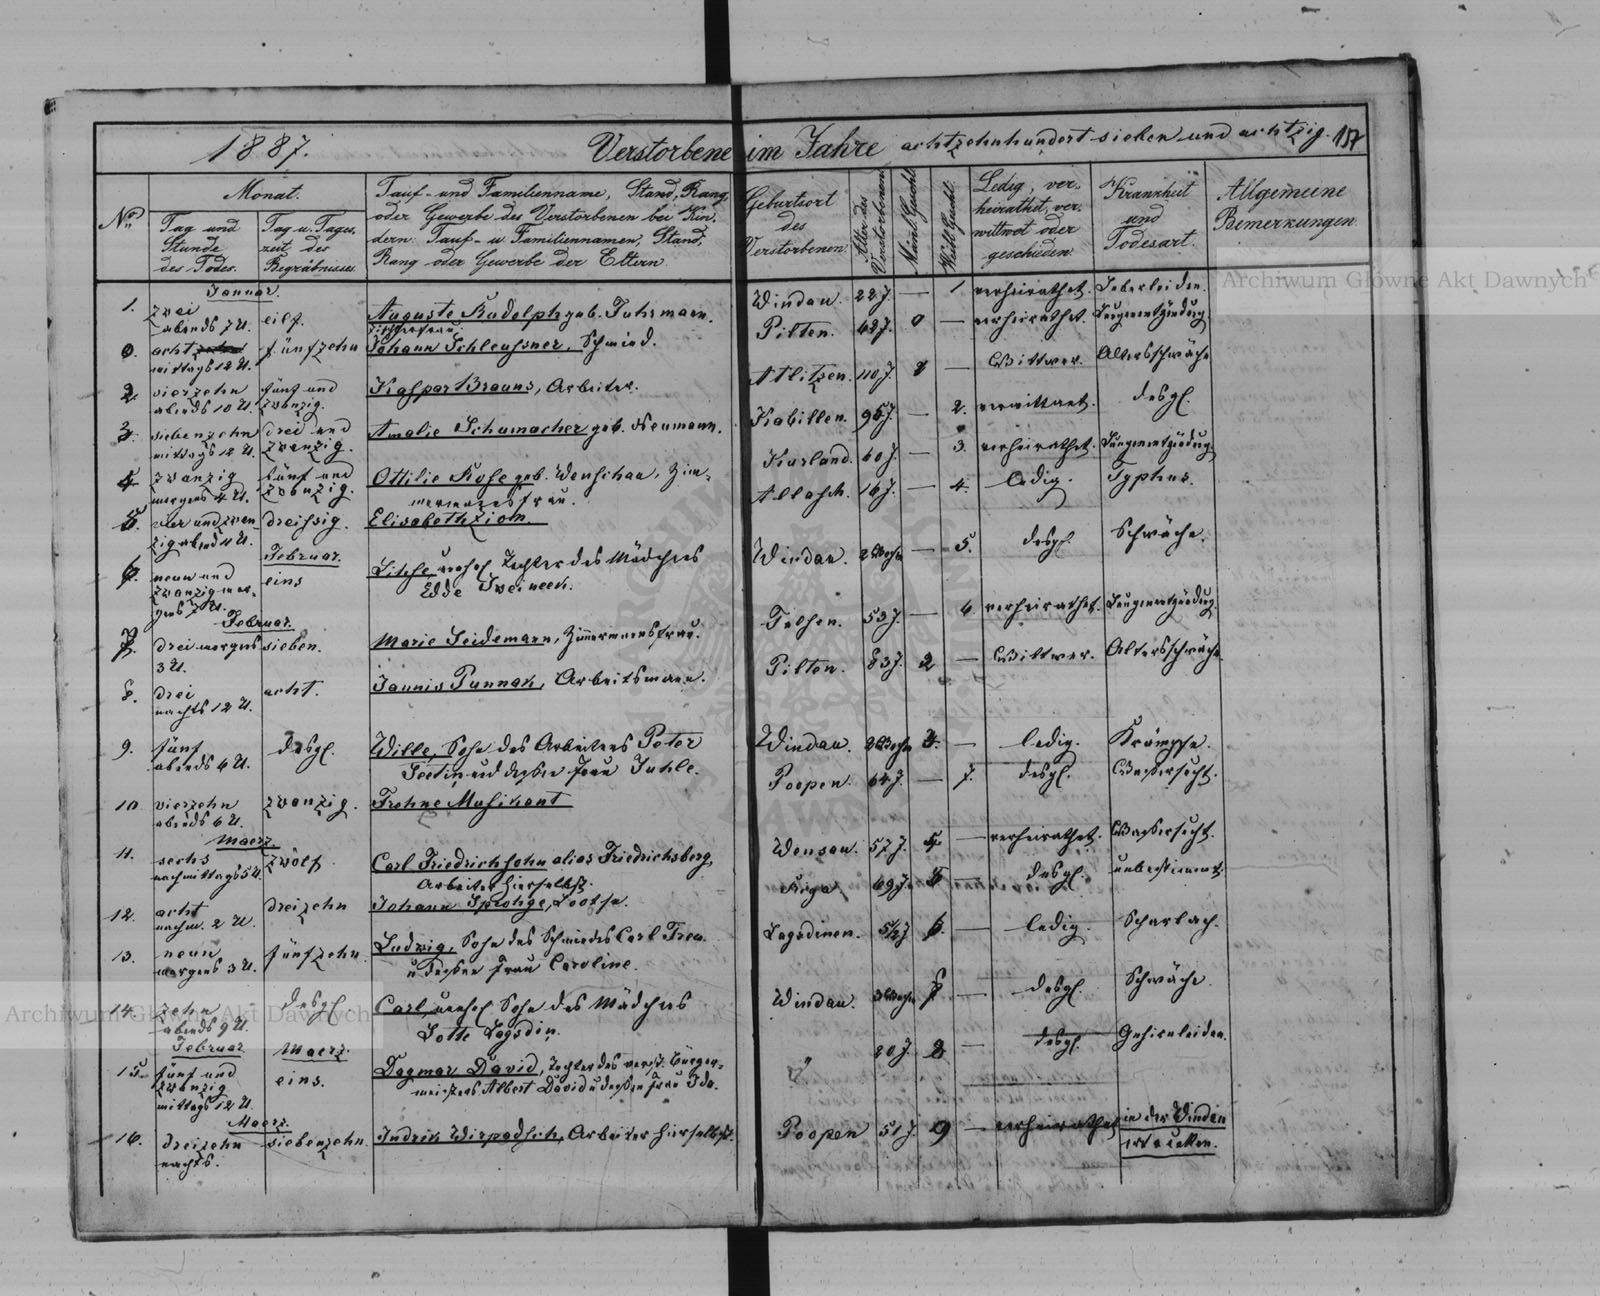 1887. Verstorbene im Jahre achtzehnhundert sieben und achtzig. 157
No.
Monat.
Tag und
Stunde
des Todes.
Tag u. Tages-
zeit des
Begräbnisses.
Tauf- und Familienname, Stand, Rang
oder Gewerbe des Verstorbenen bei Kin-
dern: Tauf- u. Familiennamen, Stand,
Rang oder Gewerbe der Eltern.
Geburtsort
des
Verstorbenen.
Alter des
Verstorbenen
Männl. Geschl.
Weibl. Geschl.
Ledig, ver-
heirathet, ver-
wittwet oder
geschieden.
Krankheit
und
Todesart.
Allgemeine
Bemerkungen.
Januar.
1. zwei abends 7 U. eilf. Auguste Rudolph geb. Fuhrmann. Windau. 22 J. — 1 verheirathet. Leberleiden.
achtzehn mittags 12 U. fünfzehn Johann Schleussner, Schmied. Pilten. 62 J. — verheirathet. Lungenentzündung.
2. vierzehn abends 10 U. fünf und zwanzig. Kaspar Brauns, Arbeiter. Atlitzen. 110 J. — Wittwer. Altersschwäche
3. siebenzehn mittags 12 U. drei und zwanzig. Amalie Schumacher geb. Neumann. Kabillen. 95 J. — 2. verwittwet. desgl.
4. zwanzig morgens 4 U. fünf und zwanzig. Ottilie Rose geb. Wenschau, Zim-
mermannsfrau. Kurland. 60 J. — 3. verheirathet. Lungenentzündung
5. vier und zwan-
zig abends 11 U. dreissig. Elisabeth Ziom. Allasch. 16 J. — 4. ledig. Typhus.
Februar.
6. neun und
zwanzig mor-
gens 7 U. eins Lihse, unehel. Tochter des Mädchens
Edde Sweineek. Windau. 2 Woch. — 5. desgl. Schwäche.
Februar.
7. drei morgens
3 U. sieben. Marie Seidemann, Zimmermannsfrau. Telsen. 53 J. — 6. verheirathet. Lungenentzündung.
8. drei
nachts 12 U. acht. Jannis Punnak, Arbeitsmann. Pilten. 83 J. 2 — Wittwer. Altersschwäche
9. fünf
abends 6 U. desgl. Wille, Sohn des Arbeiters Peter
Seetin und dessen Frau Juhle. Windau. 2 Woch. — ledig. Krämpfe.
10 vierzehn
abends 6 U. zwanzig. Trehne Musikant Poopen. 64 J. — 7. desgl. Wassersucht.
Maerz.
11. sechs
nachmittags 5 U. zwölf Carl Friedrichsohn alias Friedrichsberg,
Arbeiter hierselbst. Wensau. 57 J. — verheirathet. Wassersucht.
12. acht
nachm. 2 U. dreizehn Johann Sprohge, Lootse. Riga. 69 J. 5 — desgl. unbestimmt.
13. neun
morgens 3 U. fünfzehn. Ludwig, Sohn des Schmiedes Carl Freu.
u. dessen Frau Caroline. Lagsdinen. 5½ J 6. — ledig. Scharlach.
14. zehn
abends 9 U. desgl Carl, unehel. Sohn des Mädchens
Lotte Lagsdin. Windau. 3 Woch. — desgl. Schwäche.
Februar Maerz.
15. fünf und
zwanzig
mittags 12 U. eins. Dagmar David, Tochter des verst. Bürger-
meisters Albert David u. dessen Frau Ida. " 20 J. 8 — desgl. Gehirnleiden.
Maerz.
16. dreizehn
nachts. siebenzehn. Indrik Wirpodsch, Arbeiter hierselbst. Poopen 51 J. 9 — verheirathet in der Windau
ertrunken.
Archiwum Główne Akt Dawnych
Archiwum Główne Akt Dawnych